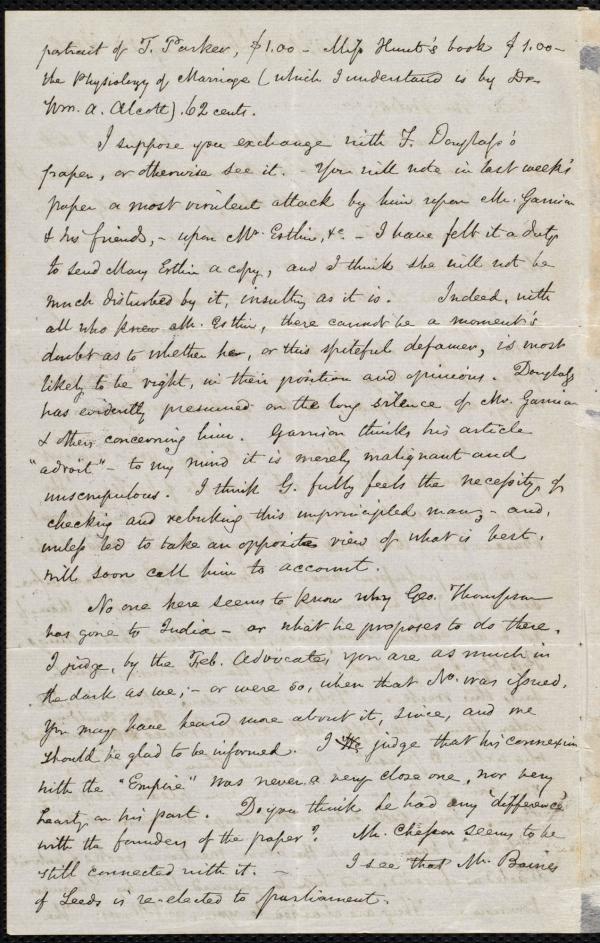 portrait of T. Parker, $1.00 – Miss Hunt's book $1.00 –
the Physiology of Marriage (which I understand is by Dr.
Wm. A. Alcott) .62 cents.
I suppose you exchange with F. Douglass's
paper, or otherwise see it. – You will note in last week's
paper a most virulent attack by him upon Mr. Garrison
& his friends, – upon Mr. Estlin, &c. – I have felt it a duty
to send Mary Estlin a copy, and I think she will not be
much disturbed by it, insulting as it is. Indeed, with
all who knew Mr. Estlin, there cannot be a moment's
doubt as to whether he, or this spiteful defamer, is most
likely to be right, in their position and opinions. Douglass
has evidently presumed on the long silence of Mr. Garrison
& others concerning him. Garrison thinks his article
"adroit" – to my mind it is merely malignant and
unscrupulous. I think G. fully feels the necessity of
checking and rebuking this unprincipled man, – and,
unless led to take an opposite view of what is best,
will soon call him to account.
No one here seems to know why Geo. Thompson
has gone to India – or what he proposes to do there.
I judge, by the Feb. Advocate, you are as much in
the dark as we, – or were so, when that No. was issued.
You may have heard more about it, since, and we
should be glad to be informed. I judge that his connexion
with the "Empire" was never a very close one, nor very
hearty on his part. Do you think he had any "difference"
with the founders of the paper? Mr. Chesson seems to be
still connected with it. – I see that Mr. Baines
of Leeds is re-elected to parliament.